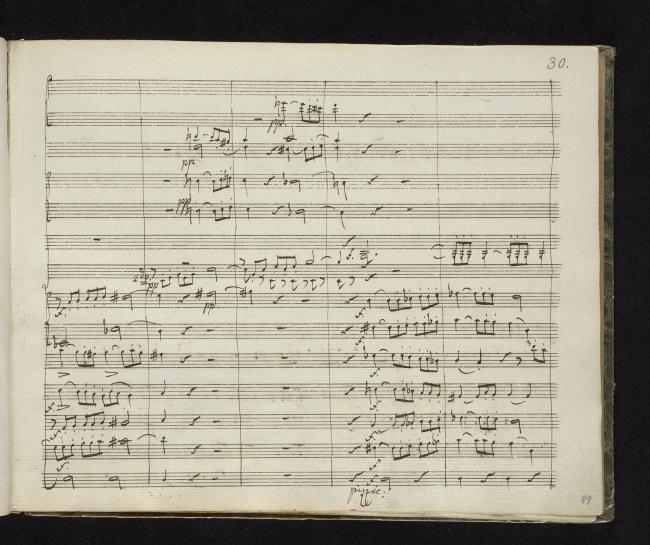 30.
pp
pp
pp
pp
pp
pizzic:
89